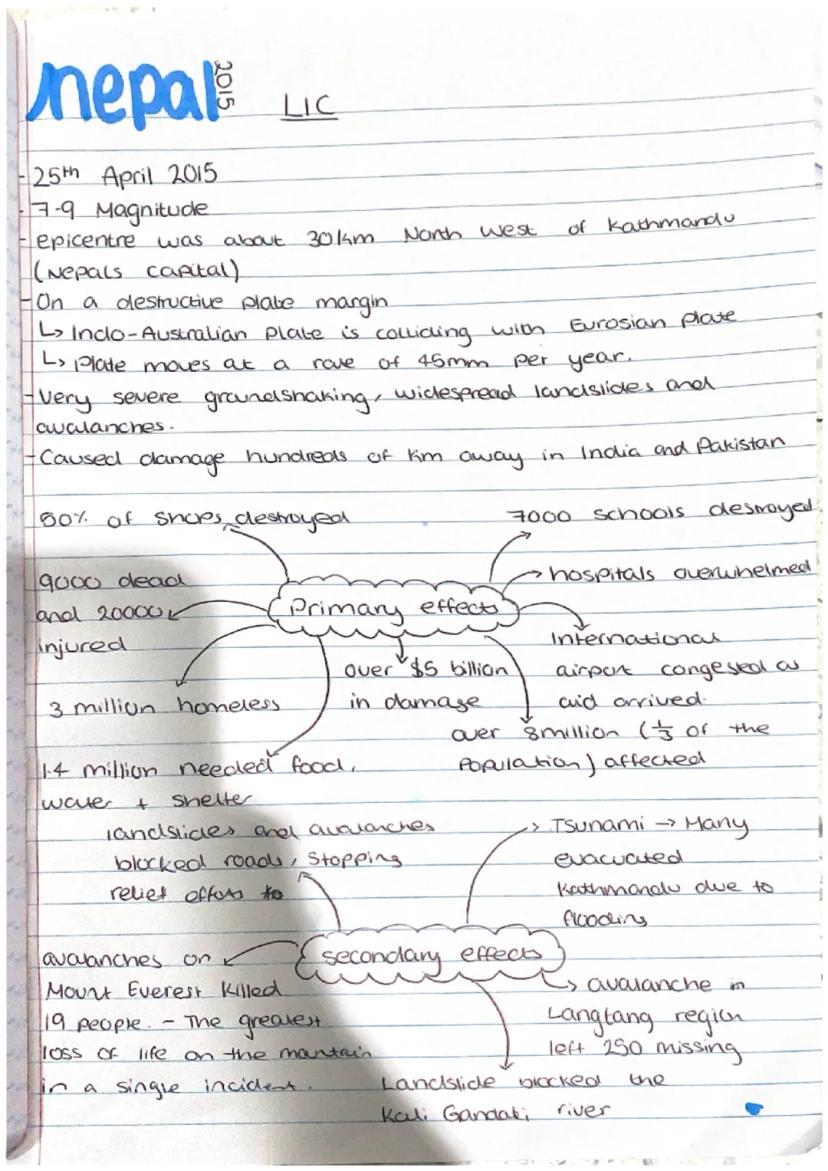 nepal 2015
LIC
- 25th April 2015
- 7.9 Magnitude
- epicentre was about 30km North West of Kathmandu
(Nepals capital)
- On a destructive plate margin
↳ Indo-Australian plate is colliding with Eurosian plate
↳ Plate moves at a rate of 45mm per year.
- Very severe groundshaking, widespread landslides and
avalanches.
- Caused damage hundreds of km away in India and Pakistan
50% of shops destroyed
7000 schools destroyed
hospitals overwhelmed
9000 dead
and 20000
injured
Primary effects
International
airport congested as
aid arrived.
over $5 billion
in damage
3 million homeless
over 8 million (1/3 of the
population) affected
1.4 million needed food,
water + shelter
landslides and avalanches
blocked roads, stopping
relief efforts to
Tsunami → Many
evacuated
Kathmandu due to
flooding
secondary effects
avalanches on
Mount Everest killed
19 people. - The greatest
loss of life on the mountain
in a single incident.
avalanche in
Langtang region
left 250 missing
Landslide blocked the
Kali Gandaki river